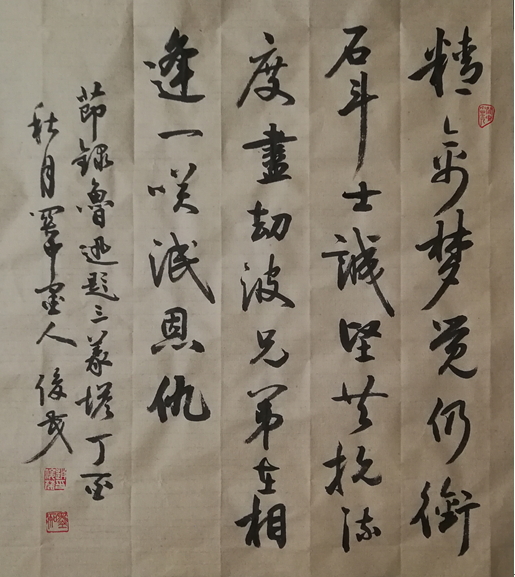 精禽梦觉仍衔
石斗士誠坚共抗流
度盡劫波兄弟在相
逢一笑泯恩仇
节録魯迅题三義塔丁酉
秋月军書人俊